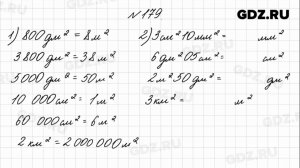 GDZ.RU
№ 179
1) 800 дм² = 8 м²
3 800 дм² = 38 м²
5 000 дм² = 50 м²
10 000 см² = 1 м²
60 000 см² = 6 м²
2 км² = 2 000 000 м²
2) 3 см² 10 мм² = мм²
6 дм² 05 см² = см²
2 м² 50 дм² = дм²
3 км² = м²
GDZ.RU